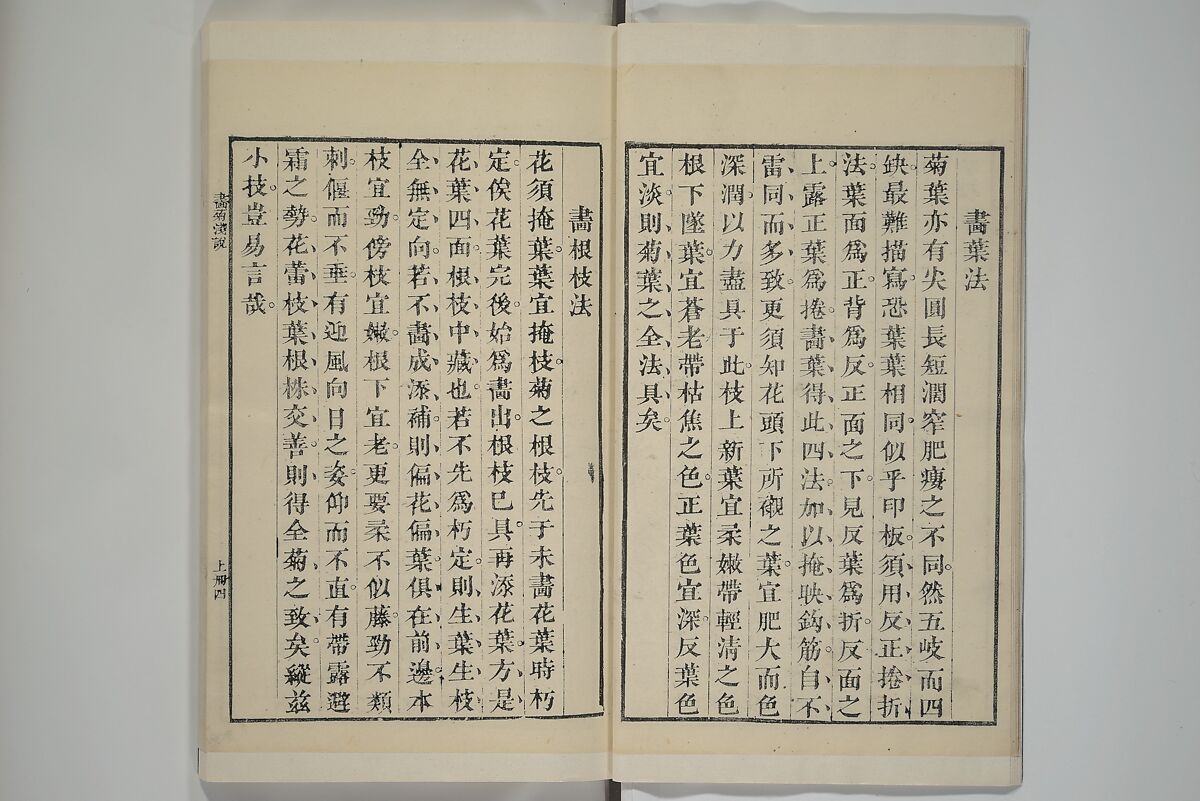 畫葉法
菊葉亦有尖圓長短濶窄肥瘦之不同。然五岐而四
缺。最難描寫。恐葉葉相同。似乎印板。須用反正捲折
法。葉面爲正。背爲反。正面之下見反葉爲折。反面之
上露正葉爲捲。畫葉得此四法。加以掩映鈎筋。自不
雷同而多致。更須知花頭下所襯之葉。宜肥大而色
深潤。以力盡具于此。枝上新葉宜柔嫩帶輕清之色
根下墜葉。宜蒼老帶枯焦之色。正葉色宜深。反葉色
宜淡。則菊葉之全法具矣。
畫根枝法
花須掩葉。葉宜掩枝。菊之根枝。先于未畫花葉時朽
定。俟花葉完後。始爲畫出。根枝已具。再添花葉。方是
花葉四面。根枝中藏也。若不先爲朽定。則生葉生枝
全無定向。若不畫成添補。則偏花偏葉。俱在前邊。本
枝宜勁。傍枝宜嫩。根下宜老。更要柔不似藤。勁不類
刺。偃而不垂。有迎風向日之姿。仰而不直。有帶露避
霜之勢。花蕾枝葉根株交善。則得全菊之致矣。縱茲
小技。豈易言哉。
畫菊淺說
上冊四